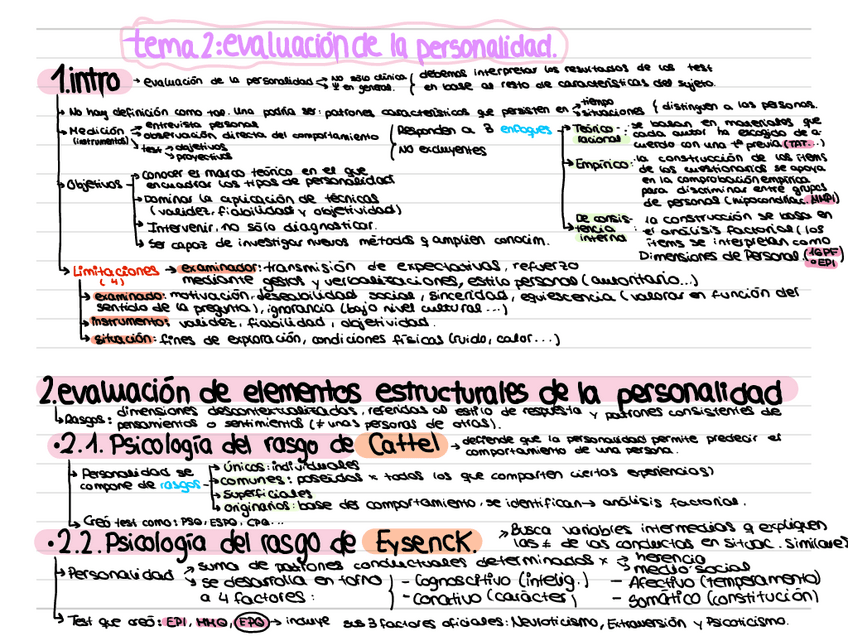 tema 2: evaluación de la personalidad.
1. intro → evaluación de la personalidad → No sólo clínica { debemos interpretar los resultados de los test
Ψ en general. en base al resto de características del sujeto.
→ No hay definición como tal. Una podría ser: patrones característicos que persisten en → tiempo
→ situaciones { distinguen a las personas.
→ Medición → entrevista personal
(instrumentos) → observación directa del comportamiento
→ test → objetivos
→ proyectivos
{ Responden a 3 enfoques
No excluyentes
→ Teórico-racional: se basan en materiales que
cada autor ha escogido de a-
cuerdo con una tª previa (TAT...)
→ Empírico: la construcción de los ítems
de los cuestionarios se apoya
en la comprobación empírica
para discriminar entre grupos
de personal (hipocondríac. MMPI)
→ De consis-
tencia
interna:
la construcción se basa en
el análisis factorial (los
ítems se interpretan como
Dimensiones de Personal. (16PF
EPI)
→ Objetivos → conocer el marco teórico en el que
encuadrar los tipos de personalidad
→ Dominar la aplicación de técnicas
(validez, fiabilidad y objetividad)
→ Intervenir, no sólo diagnosticar.
→ Ser capaz de investigar nuevos métodos q amplíen conocim.
→ Limitaciones → examinador: transmisión de expectativas, refuerzo
(4) mediante gestos y verbalizaciones, estilo personal (autoritario...)
→ examinado: motivación, deseabilidad social, sinceridad, aquiescencia (valorar en función del
sentido de la pregunta), ignorancia (bajo nivel cultural...)
→ instrumento: validez, fiabilidad, objetividad.
→ situación: fines de exploración, condiciones físicas (ruido, calor...)
2. evaluación de elementos estructurales de la personalidad
→ Rasgos: dimensiones descontextualizadas, referidas al estilo de respuesta y patrones consistentes de
pensamientos o sentimientos (≠ unas personas de otras).
• 2.1. Psicología del rasgo de Cattel → defiende que la personalidad permite predecir el
comportamiento de una persona.
→ Personalidad se
compone de rasgos
→ únicos: individuales
→ comunes: poseídos x todos los que comparten ciertas experiencias)
→ superficiales
→ originarios: base del comportamiento, se identifican → análisis factorial.
→ Creó test como: PSQ, ESPQ, CPQ...
• 2.2. Psicología del rasgo de Eysenck. → Busca variables intermedias q expliquen
las ≠ de las conductas en situac. similares
→ Personalidad → suma de patrones conductuales determinados x → herencia
→ medio social
→ se desarrolla en torno
a 4 factores:
- Cognoscitivo (intelig.) - Afectivo (temperamento)
- Conativo (carácter) - Somático (constitución)
→ Test que creó: EPI, MMQ, EPQ → incluye sus 3 factores oficiales: Neuroticismo, Extraversión y Psicoticismo.